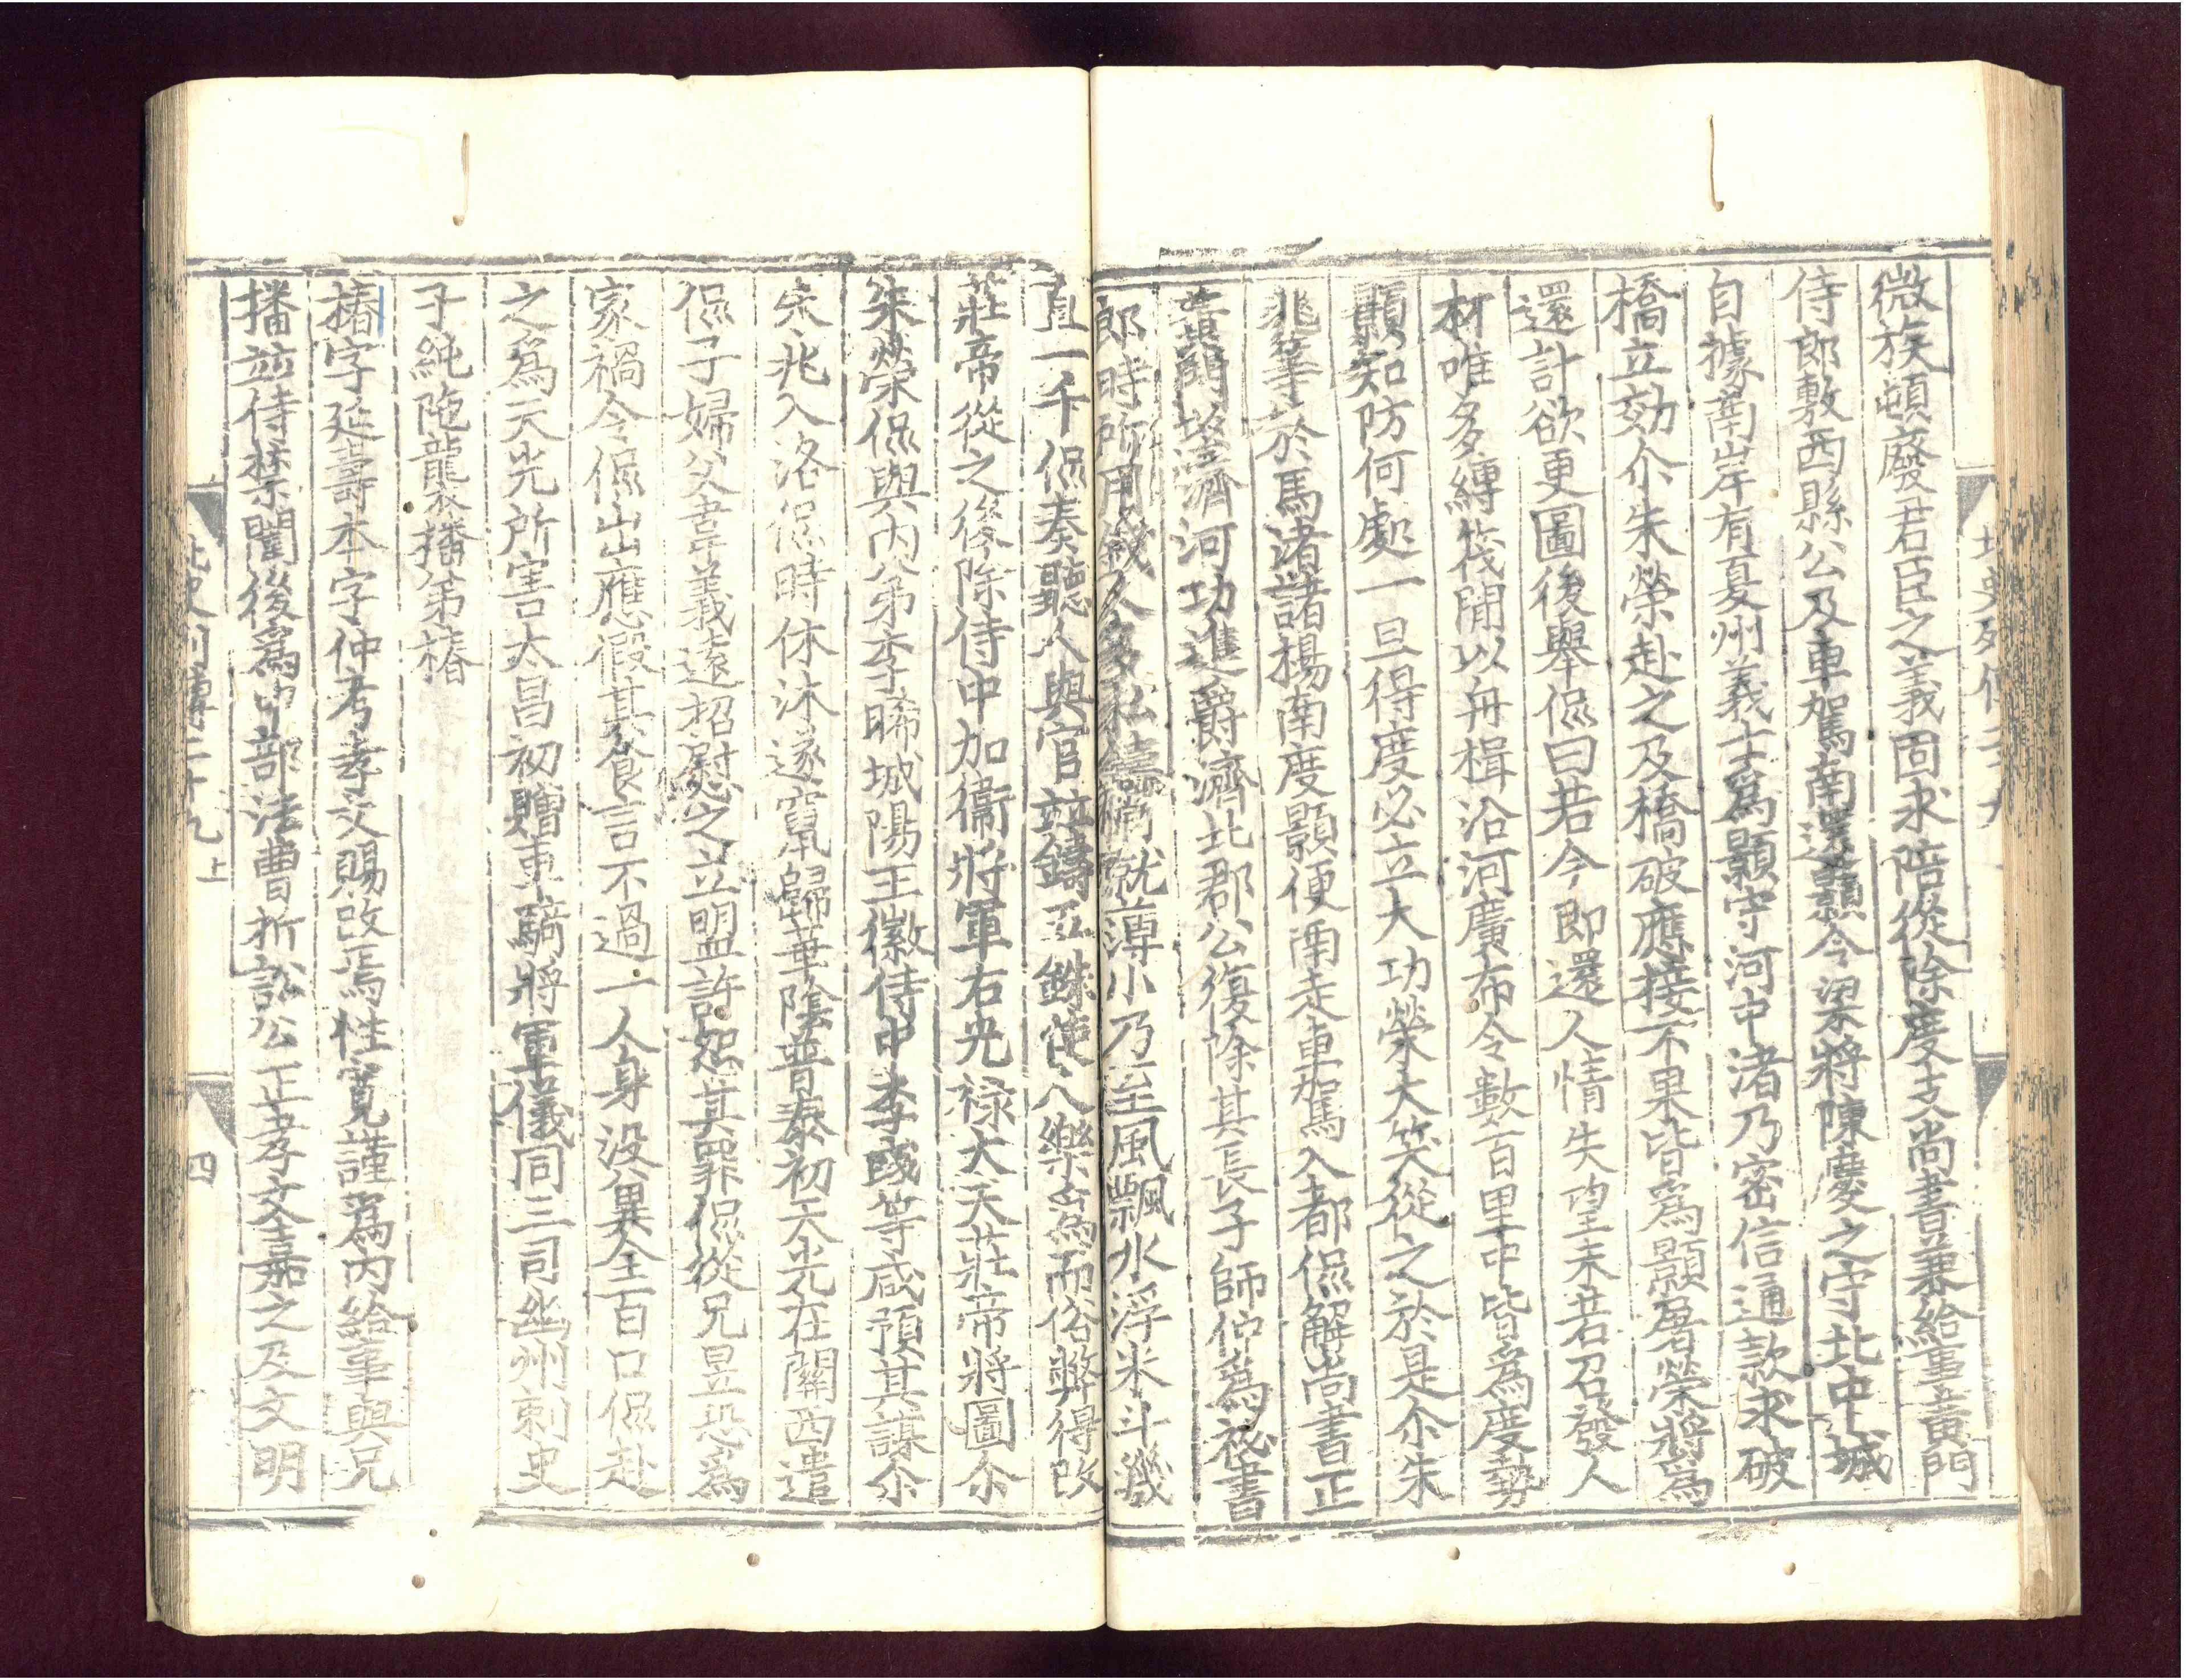 微族頓廢君臣之義固求陪從除度支尚書兼給事黃門
侍郎敷西縣公及車駕南還顥令梁將陳慶之守北中城
自據南岸有夏州義士爲顥守河中渚乃密信通款求破
橋立効尒朱榮赴之及橋破應接不果皆爲顥屠榮將爲
還計欲更圖後舉侃曰若今即還人情失望未若召發人
材唯多縛筏間以舟楫沿河廣布令數百里中皆爲度勢
顥知防何處一旦得度必立大功榮大笑從之於是尒朱
兆等於馬渚諸楊南度顥便南走車駕入都侃解尚書正
黃門 濟河功進爵濟北郡公復除其長子師仲爲祕書
郎時所用錢人多私鑄稍就薄小乃至風飄水浮米斗幾
直一千侃奏聽人與官並鑄五銖使人樂爲而俗弊得改
莊帝從之後除侍中加衞將軍右光祿大夫莊帝將圖尒
朱榮侃與內弟李晞城陽王徽侍中李彧等咸預其謀尒
朱兆入洛侃時休沐遂竄歸華陰普泰初天光在關西遣
侃子婦父韋義遠招慰之立盟許恕其罪侃從兄昱恐爲
家禍令侃出應假其食言不過一人身沒冀全百口侃赴
之爲天光所害太昌初贈車騎將軍儀同三司幽州刺史
子純陁襲播弟椿
椿字延壽本字仲考孝文賜改焉性寬謹爲內給事與兄
播並侍禁闈後爲中部法曹折訟公正孝文嘉之及文明
北史列傳二十九上
四